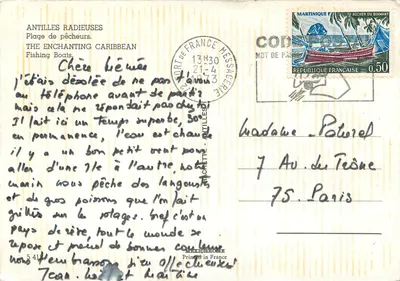 ANTILLES RADIEUSES
Plage de pêcheurs.
THE ENCHANTING CARIBBEAN
Fishing Boats.
Chère
J'étais désolée de ne pas t'avoir
au téléphone avant de partir
mais cela ne répondait pas chez toi
Il fait ici un temps superbe, 30°
en permanence, l'eau est chaude
il y a un bon petit vent pour
aller d'une île à l'autre, notre
marin nous pêche des langoustes
et de gros poissons que l'on fait
grillés sur les plages. bref c'est un
pays de rêve tout le monde se
repose et prend de bonnes couleurs
nous t'embrassons bien affectueusement
Jean
FORT DE FRANCE MESSAGERIE
13H30
MARTINIQUE
ROCHER DU DIAMANT
REPUBLIQUE FRANCAISE
0,50
CODE
MOT DE PASSE
Madame
7 Av. du Trône
75. Paris
Printed in France